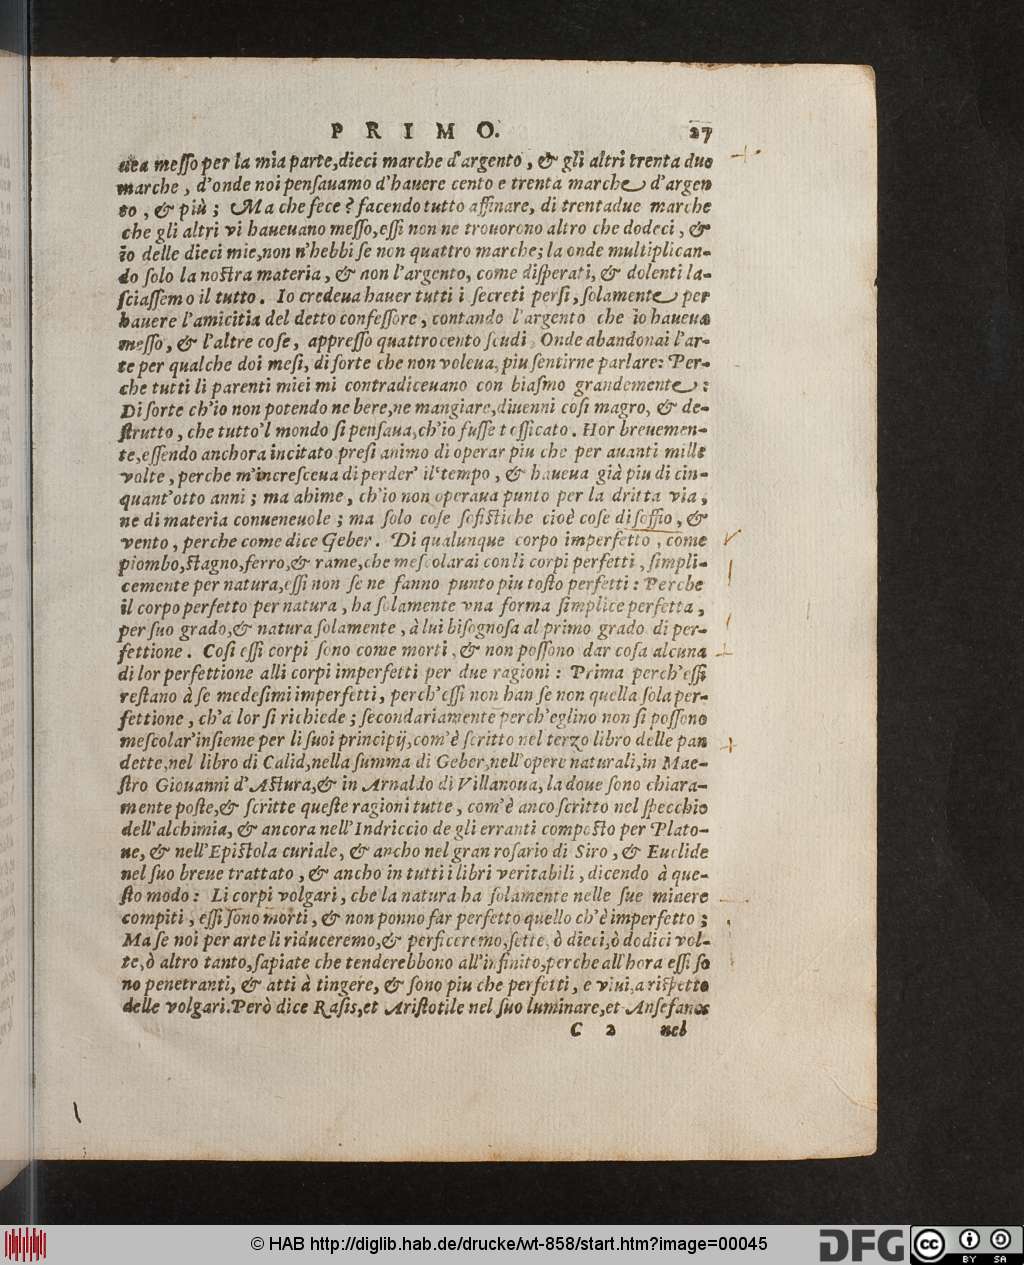 PRIMO. 27
uea meſſo per la mia parte,dieci marche d'argento, & gli altri trenta due
marche, d'onde noi penſauamo d'hauere cento e trenta marche d'argen
to, & più; Ma che fece? facendo tutto affinare, di trentadue marche
che gli altri vi haueuano meſſo,eſſi non ne trouorono altro che dodeci, &
io delle dieci mie,non n'hebbi ſe non quattro marche; la onde multiplican-
do ſolo la noſtra materia, & non l'argento, come diſperati, & dolenti la-
ſciaſſemo il tutto. Io credeua hauer tutti i ſecreti perſi, ſolamente per
hauere l'amicitia del detto confeſſore, contando l'argento che io haueua
meſſo, & l'altre coſe, appreſſo quattrocento ſcudi, Onde abandonai l'ar-
te per qualche doi meſi, di ſorte che non voleua, piu ſentirne parlare: Per-
che tutti li parenti miei mi contradiceuano con biaſmo grandemente:
Di ſorte ch'io non potendo ne bere,ne mangiare,diuenni coſi magro, & de-
ſtrutto, che tutto'l mondo ſi penſaua,ch'io fuſſe toſſicato. Hor breuemen-
te,eſſendo anchora incitato preſi animo di operar piu che per auanti mille
volte, perche m'increſceua di perder' il tempo, & haueua già piu di cin-
quant'otto anni; ma ahime, ch'io non operaua punto per la dritta via,
ne di materia conueneuole; ma ſolo coſe ſofiſtiche cioè coſe di ſoffio, &
vento, perche come dice Geber. Di qualunque corpo imperfetto, come
piombo,ſtagno,ferro,& rame,che meſcolarai con li corpi perfetti, ſimpli-
cemente per natura,eſſi non ſe ne fanno punto piu toſto perfetti: Perche
il corpo perfetto per natura, ha ſolamente vna forma ſimplice perfetta,
per ſuo grado,& natura ſolamente, à lui biſognoſa al primo grado di per-
fettione. Coſi eſſi corpi ſono come morti, & non poſſono dar coſa alcuna
di lor perfettione alli corpi imperfetti per due ragioni: Prima perch'eſſi
reſtano à ſe medeſimi imperfetti, perch'eſſi non han ſe non quella ſola per-
fettione, ch'a lor ſi richiede; ſecondariamente perch'eglino non ſi poſſono
meſcolar'inſieme per li ſuoi principij,com'è ſcritto nel terzo libro delle pan
dette,nel libro di Calid,nella ſumma di Geber,nell'opere naturali,in Mae-
ſtro Giouanni d'Aſtura,& in Arnaldo di Villanoua, la doue ſono chiara-
mente poſte,& ſcritte queſte ragioni tutte, com'è anco ſcritto nel ſpecchio
dell'alchimia, & ancora nell'Indriccio de gli erranti compoſto per Plato-
ne, & nell'Epiſtola curiale, & ancho nel gran roſario di Siro, & Euclide
nel ſuo breue trattato, & ancho in tutti i libri veritabili, dicendo à que-
ſto modo: Li corpi volgari, che la natura ha ſolamente nelle ſue minere
compiti, eſſi ſono morti, & non ponno far perfetto quello ch'è imperfetto;
Ma ſe noi per arte li riduceremo,& perficeremo,ſette, ò dieci,ò dodici vol-
te,ò altro tanto,ſapiate che tenderebbono all'infinito,perche all'hora eſſi ſo
no penetranti, & atti à tingere, & ſono piu che perfetti, e viui,a riſpetto
delle volgari.Però dice Raſis,et Ariſtotile nel ſuo luminare,et Anſefanos
C 2 nel
© HAB http://diglib.hab.de/drucke/wt-858/start.htm?image=00045
DFG
cc BY SA